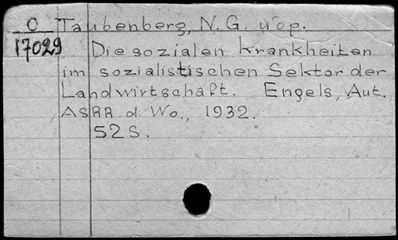 O Taubenberg, N.G. u др.
17029 Die sozialen Krankheiten
im sozialistischen Sektor der
Landwirtschaft. Engels, Aut.
ASRR d. Wo., 1932.
52 S.